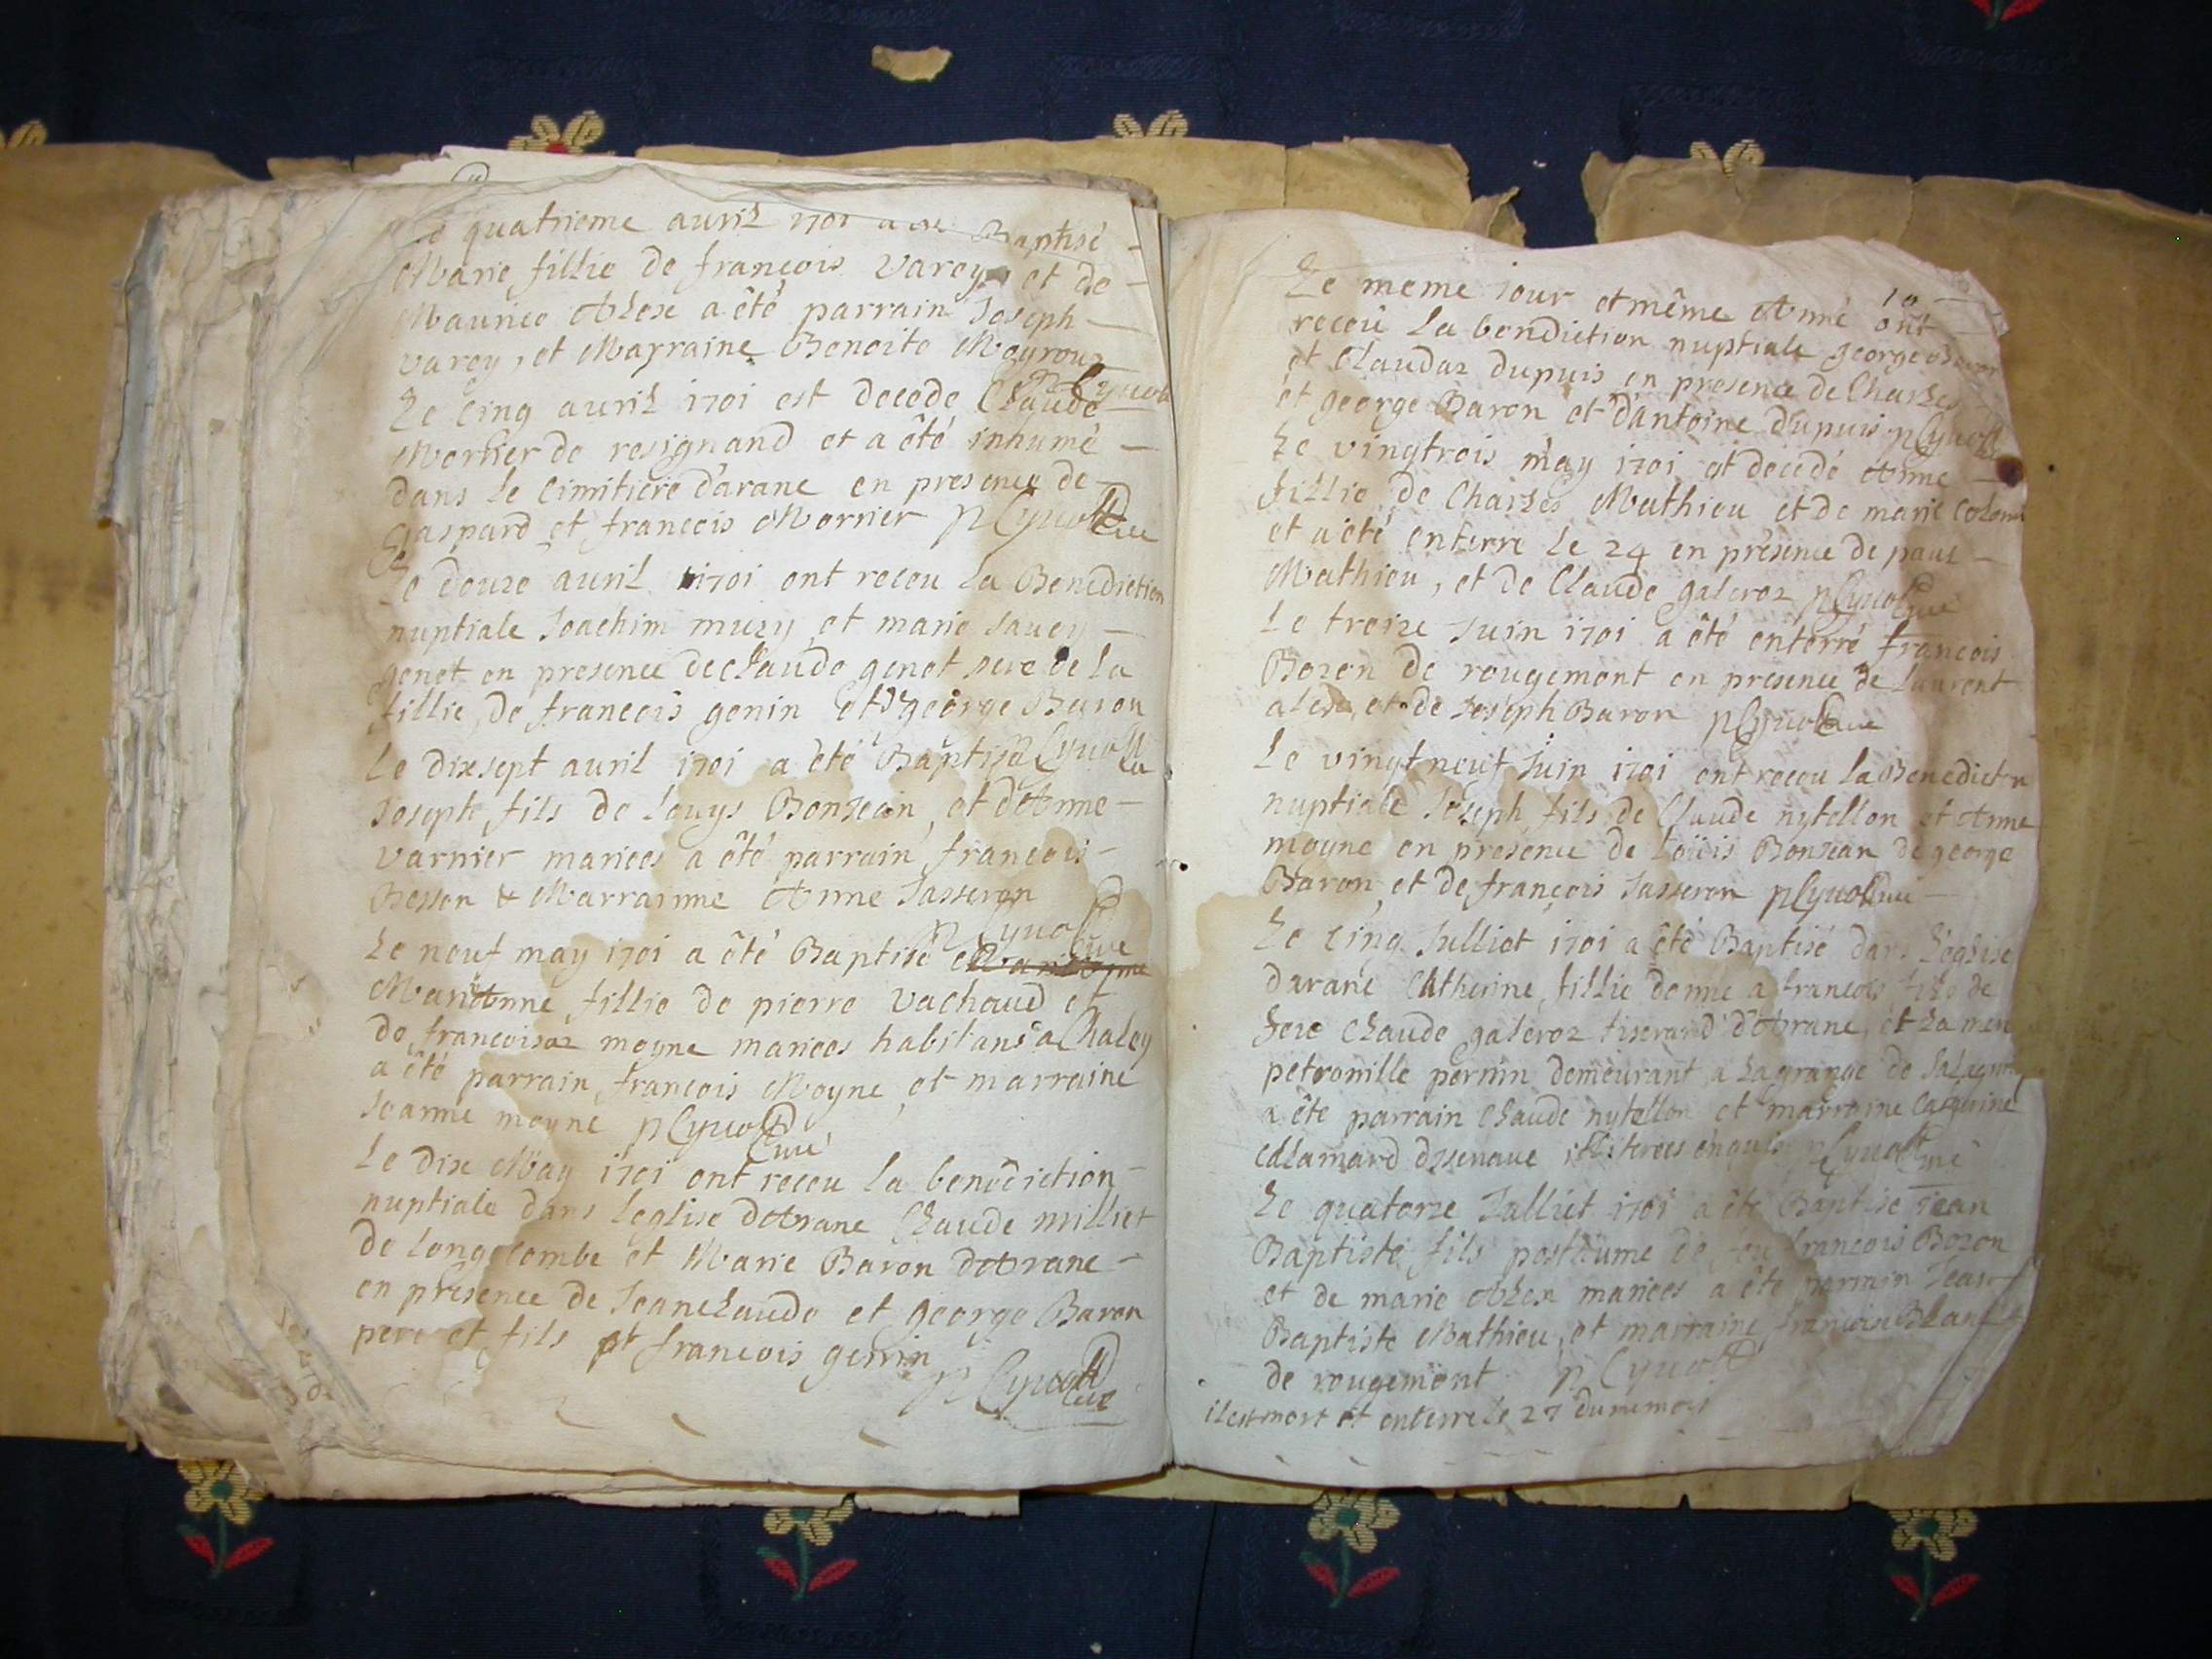 Le quatrieme auril 1701 a été Baptisé
Marie fillie de françois Varey et de
Maurice Alex a été parrain Joseph
varey, et Marraine Benoite Meyrouz
p Cyvoct
Le Cinq auril 1701 est decede Claude
Mornier de resignand et a été inhumé
dans le Cimitiere d'arane en presence de
Gaspard et francois Mornier p Cyvoct Curé
Le douze auril 1701 ont receu la Benediction
nuptiale Joachim muzy et marie savey
genet en presence de Claude genet pere de la
fillie, de francois genin et george Baron
Cyvoct
Le dixsept auril 1701 a été Baptisé
Joseph fils de Louys Bonjean, et d'Anne
varnier mariees a été parrain francois
Besson & Marrainne Anne Jasseron
p Cyvoct Curé
Le neuf may 1701 a été Baptisé
Marianne fillie de pierre Vachaud et
de francoisaz moyne mariees habitans a Chaley
a été parrain francois Moyne et marraine
Jeanne moyne p Cyvoct
Curé
Le dix May 1701 ont receu la benediction
nuptiale dans leglise d'Arane Claude milliet
de longecombe et Marie Baron d'Arane
en presence de Jeanclaude et george Baron
pere et fils et francois genin
p Cyvoct Curé
10
Le meme jour et même Anné ont
receu la bendiction nuptiale george Baron
et Claudaz dupuis en presence de Charles
et george Baron et d'antoine dupuis p Cyvoct
Le vingtrois may 1701 est decedé Anne
fillie de Charles Mathieu et de marie Colomb
et a été enterre le 24 en presence de paul
Mathieu, et de Claude galeroz p Cyvoct Curé
Le treize Juin 1701 a été enterré francois
Bozon de rougemont en presence de Laurent
alex, et de Joseph Baron p Cyvoct Curé
Le vingtneuf Juin 1701 ont receu la Benedict'n
nuptiale Joseph fils de Claude nytellon et Anne
moyne en presence de Loüis Bonjean de george
Baron et de françois Jasseron p Cyvoct Curé
Le Cinq Julliet 1701 a été Baptisé dans l'eglise
darane Catherine fillie donné a francois fils de
feu Claude galeroz tiserand d'Arane, et La mere
petronille perrin demeurant a la grange de
a été parrain Claude nytellon et marraine
illiterees enquis p Cyvoct Curé
Le quatorze Julliet 1701 a été Baptisé Jean
Baptiste fils posthume de feu francois Bozon
et de marie Alex mariees a été parrain Jean
Baptiste Mathieu, et marraine francoise Blanc
de rougemont p Cyvoct
il est mort et enterre le 27 du